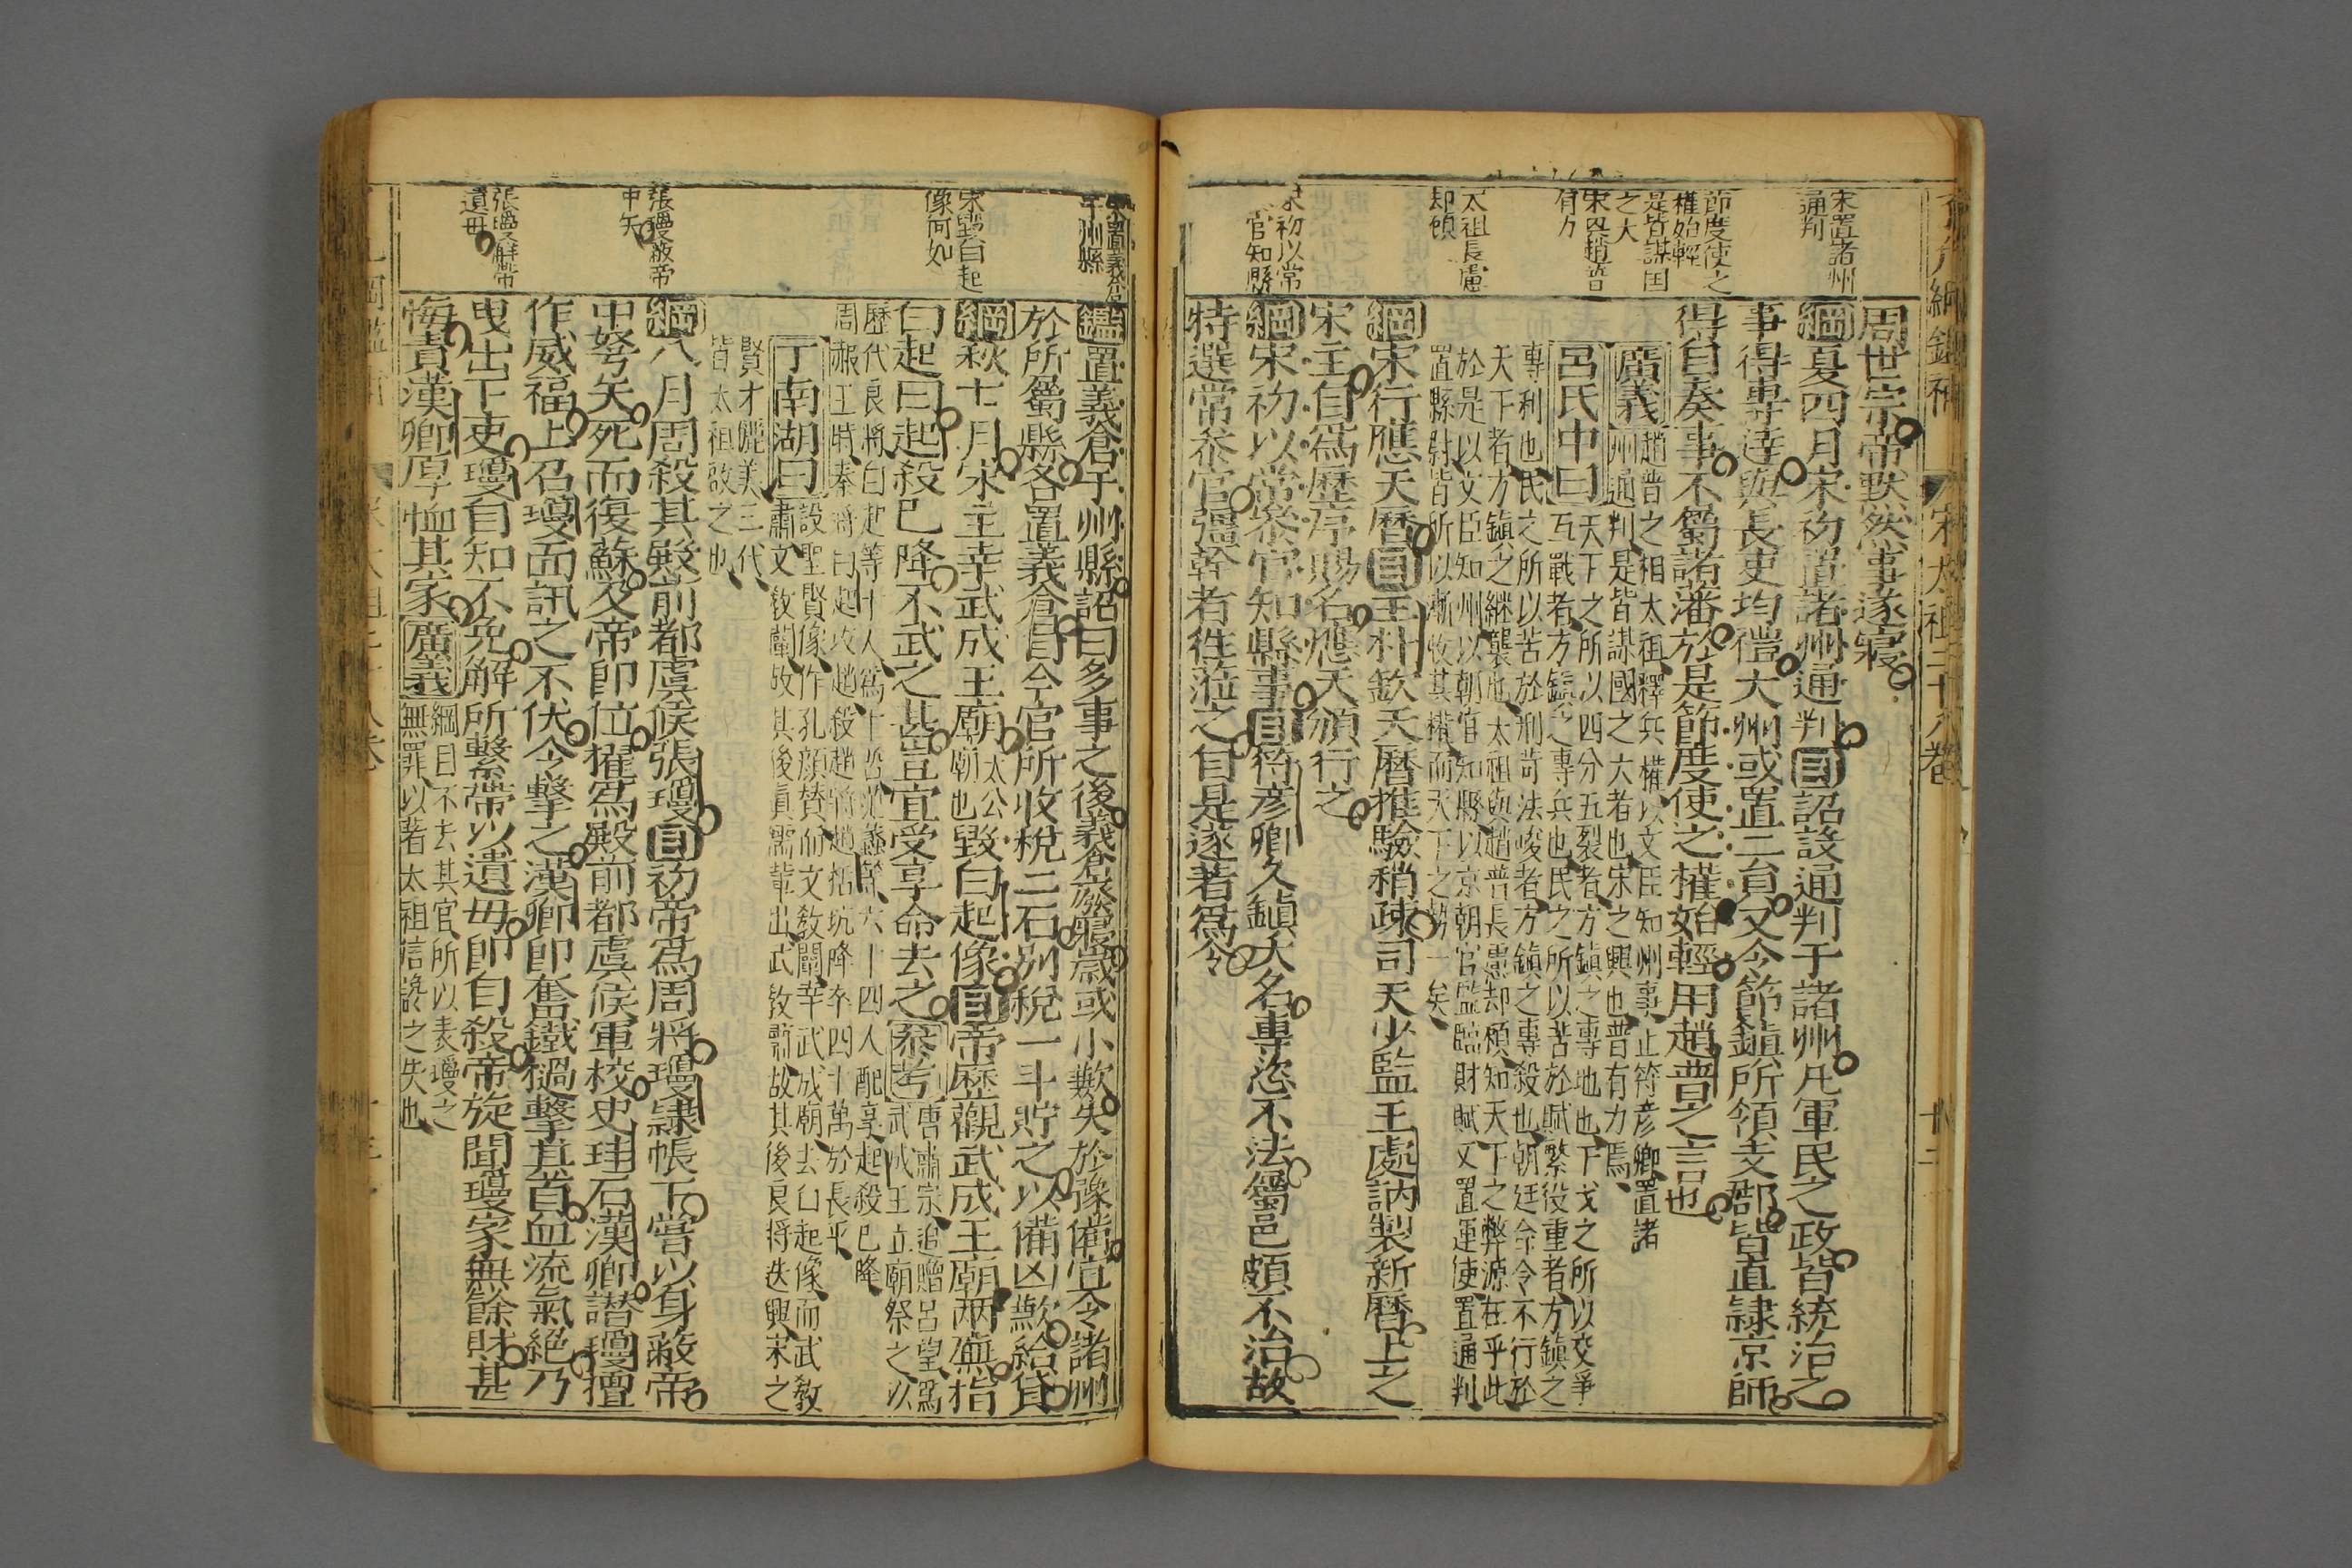 宋太祖二十八卷
宋置諸州
通判
節度使之
權始輕
是皆謀囯
之大
宋興趙普
有力
太祖長慮
却顧
宋初以常
官知縣
周世宗帝默然事遂寢
綱夏四月宋初置諸州通判目詔設通判于諸州凡軍民之政皆統治之
事得專達與長吏均禮大州或置二員又令節鎮所領支郡皆直隸京師
得自奏事不屬諸藩於是節度使之權始輕用趙普之言也
廣義趙普之相太祖釋兵權以文臣知州事止符彥卿置諸
州通判是皆謀國之大者也宋之興也普有力焉
呂氏中曰天下之所以四分五裂者方鎮之專地也干戈之所以交爭
互戰者方鎮之專兵也民之所以苦於賦繁役重者方鎮之
專利也民之所以苦於刑苛法峻者方鎮之專殺也朝廷命令不行於
天下者方鎮之継襲也太祖與趙普長慮却顧知天下之弊源在乎此
於是以文臣知州以朝官知縣以京朝官監臨財賦又置運使置通判
置縣尉皆所以漸收其權而天下之勢一矣
綱宋行應天曆目王朴欽天曆推驗稍疎司天少監王處訥製新曆上之
宋主自爲歷序賜名應天頒行之
綱宋初以常叅官知縣事目符彥卿久鎮大名專恣不法屬邑頗不治故
特選常叅官彊幹者往蒞之自是遂著爲令
宋置義倉
于州縣
宋毀白起
像何如
張瓊蔽帝
中矢
張瓊解帶
遺母
鑑置義倉于州縣詔曰多事之後義倉廢寢歲或小歉失於豫備宜令諸州
於所屬縣各置義倉自今官所收稅二石別稅一斗貯之以備凶歉給貸
綱秋七月宋主幸武成王廟太公廟也毀白起像目帝歷觀武成王廟兩廡指
白起曰起殺已降不武之甚豈宜受享命去之叅考唐肅宗追贈呂望爲
武成王立廟祭之以
歷代良將白起等十人爲十哲范蠡等六十四人配享起殺已降
周赧王時秦將白起攻趙殺趙將趙括坑降卒四十萬於長平
丁南湖曰設聖賢像作孔顏贊而文敎闡幸武成廟去白起像而武敎
肅文敎闡故其後眞儒輩出武敎肅故其後良將迭興宋之
賢才媲美三代
皆太祖啟之也
綱八月周殺其殿前都虞候張瓊目初帝爲周將瓊隸帳下嘗以身蔽帝
中弩矢死而復蘇及帝卽位擢爲殿前都虞候軍校史珪石漢卿譖瓊擅
作威福上召瓊面訊之不伏令擊之漢卿卽奮鐵撾擊其首血流氣絕乃
曳出下吏瓊自知不免解所繫帶以遺母卽自殺帝旋聞瓊家無餘財甚
悔責漢卿厚恤其家廣義綱目不去其官所以表瓊之
無罪以著太祖信讒之失也